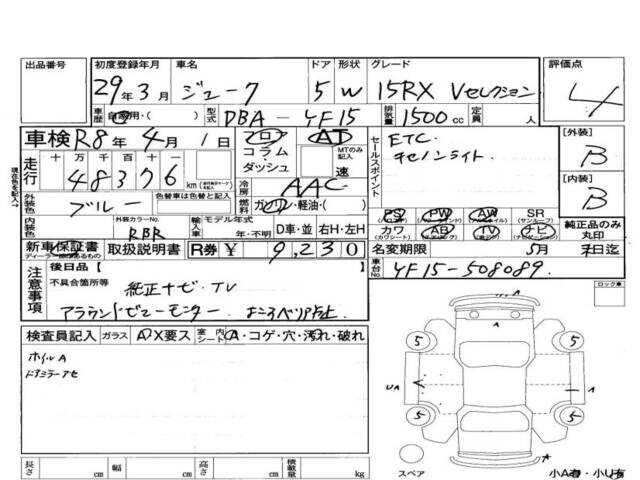 出品番号 初度登録年月 車名 ドア 形状 グレード 評価点
29年3月 ジューク 5 W 15RX Vセレクション 4
車歴 自家用・( ) 型式 DBA-YF15 排気量 1500cc 定員 人
車検 R8年4月1日 フロア AT セールスポイント ETC [外装]
コラム・ダッシュ MTのみ記入 速 キセノンライト B
現在色を記入→
走行 十万千百十一 48376 km 冷房 AAC [内装]
外装色 ブルー 色替車は色替前の色 燃料 ガソリン・軽油・( ) B
PS PW AW SR
(パワステ) (パワーウィンド) (アルミホイル) (サンルーフ)
内装色 外装カラーNo. RBR 輸入車 モデル年式 年・不明 D車・並 右H・左H カワ AB TV ナビ 純正品のみ丸印
(カワシート) (エアバック)
新車保証書 取扱説明書 R券 ¥ 9,230 名変期限 5月 末日迄
ディーラー印のあるもの
注意事項 後日品[ ] 車台No. YF15-508089
不具合箇所等 純正ナビ・TV
アラウンドビューモニター よこスベリ防止 ロック車
検査員記入 ガラス A X要ス 室内シート A・コゲ・穴・汚れ・破れ
ホイルA
ドアミラーアセ
5 5
UA A
5 5
A
長さ cm 幅 cm 高さ cm 積載量 kg
スペア 小A有・小U有